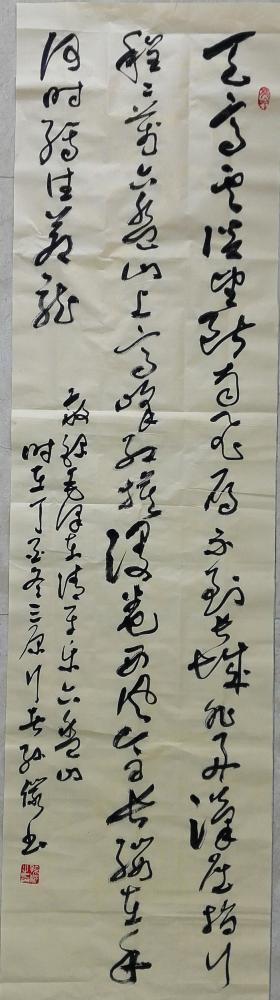 天高云淡望断南飞雁不到长城非好漢屈指行
程二萬六盘山上高峰红旗漫卷西风今日长缨在手
何时缚住苍龙
敬录毛泽东清平乐六盘山
时在丁酉冬三原